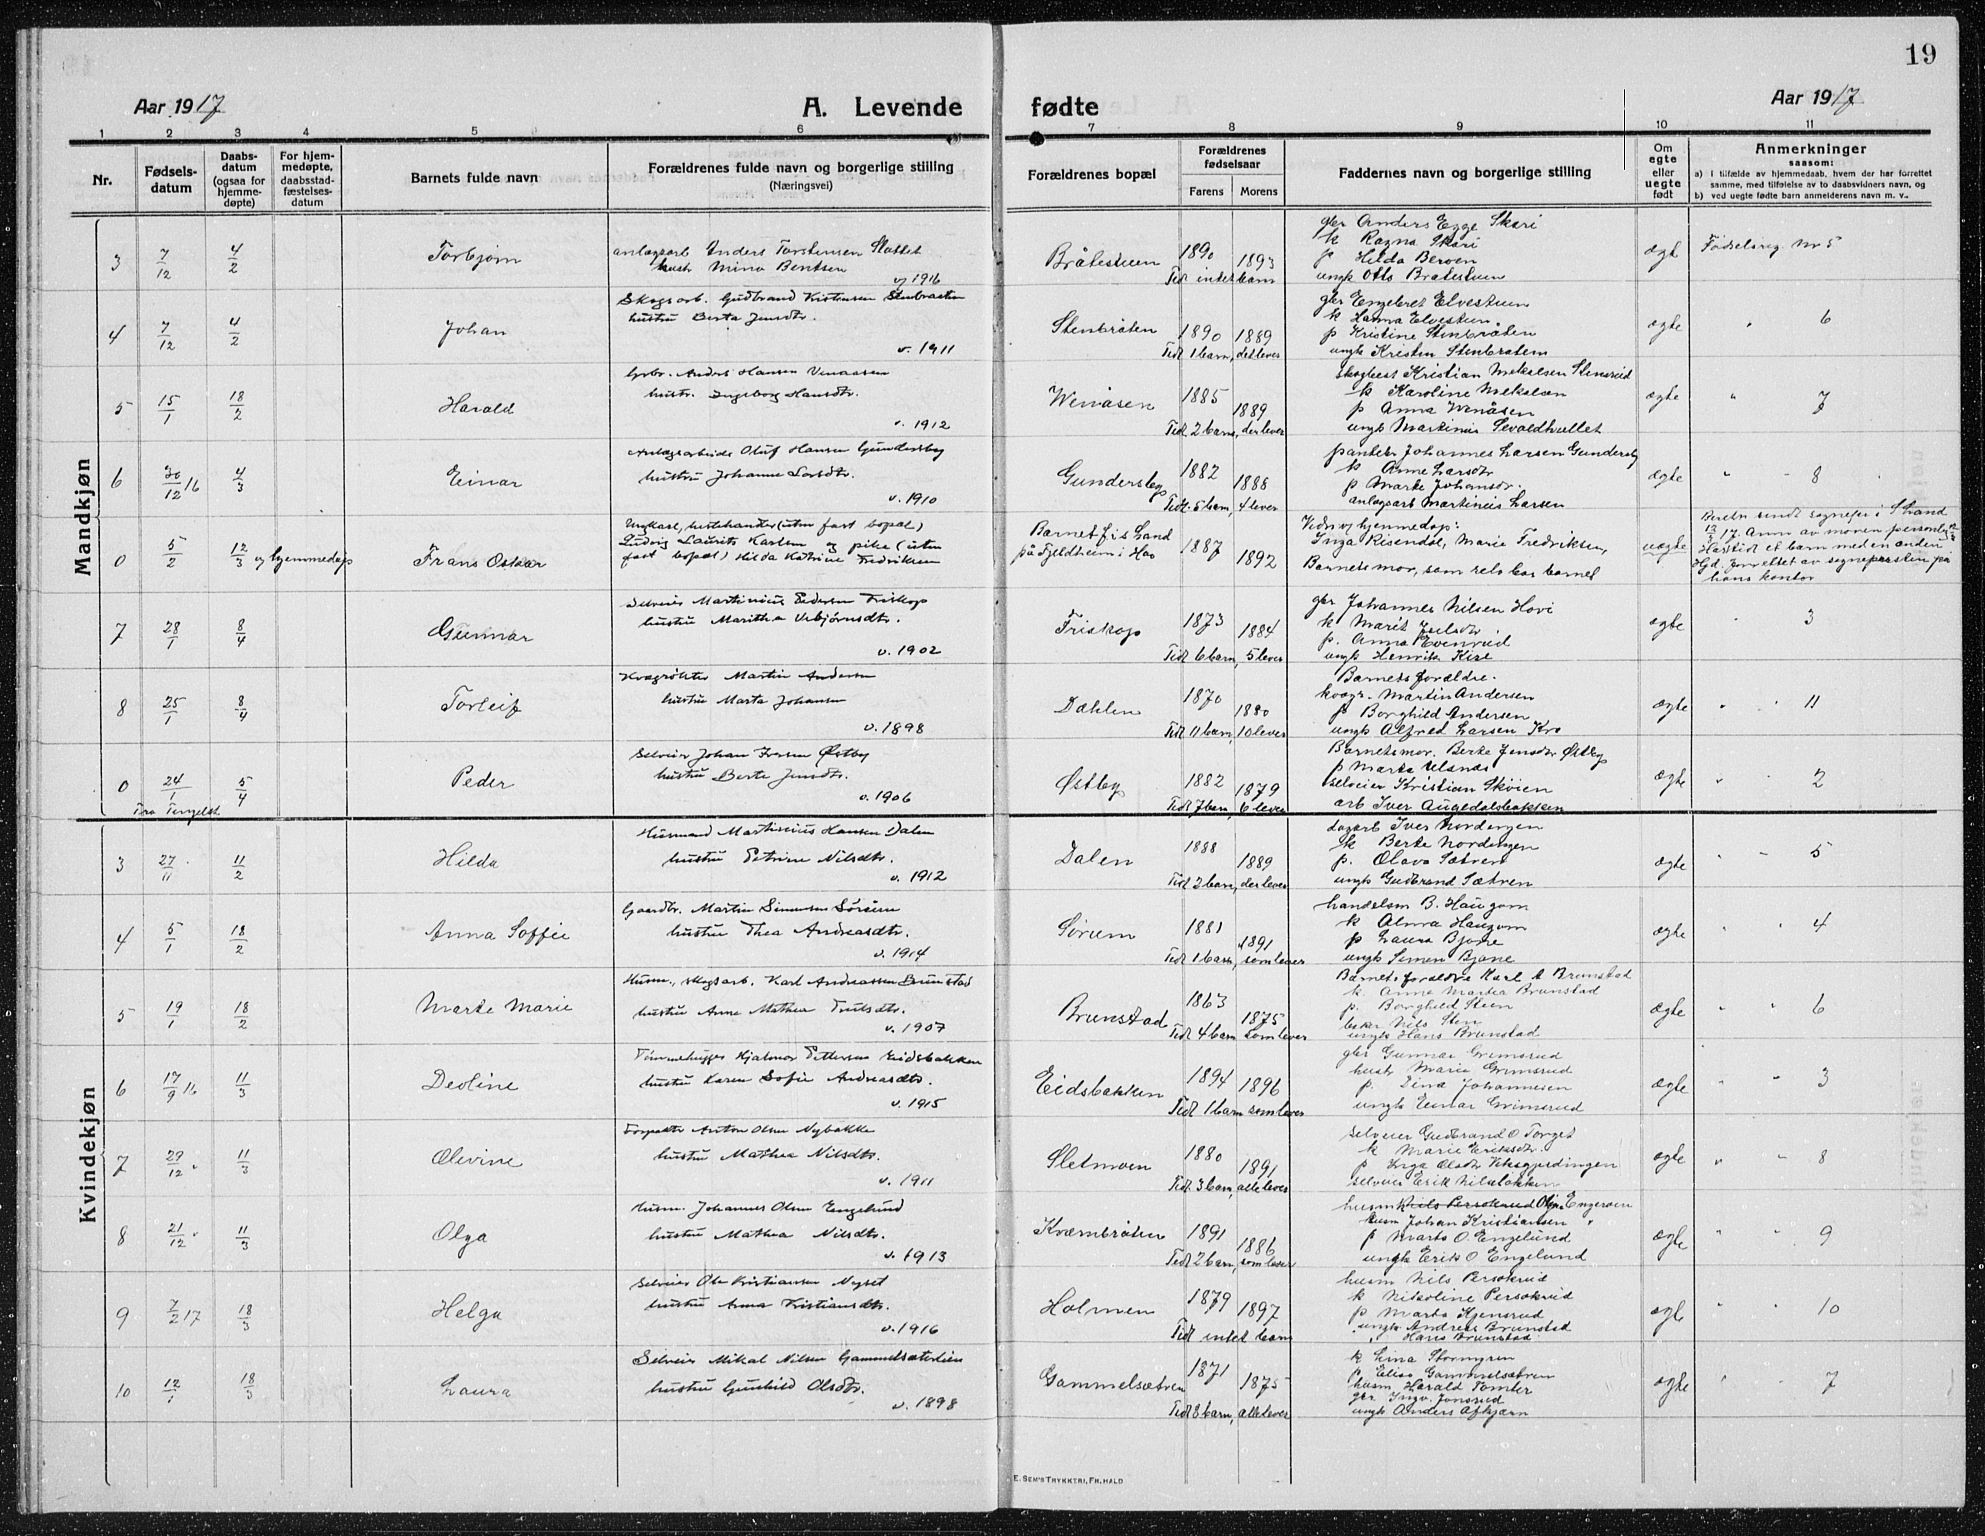 19
Aar 1917
A. Levende fødte
Aar 1917
1 2 3 4 5 6 7 8 9 10 11
Nr.
Fødsels-
datum
Daabs-
datum
(ogsaa for
hjemme-
døpte)
For hjem-
medøpte,
daabsstad-
fæstelses-
datum
Barnets fulde navn
Forældrenes fulde navn og borgerlige stilling
(Næringsvei)
Forældrenes bopæl
Forældrenes
fødselsaar
Farens
Morens
Faddernes navn og borgerlige stilling
Om
egte
eller
uegte
født
Anmerkninger
saasom:
a) i tilfælde av hjemmedaab, hvem der har forrettet
samme, med tilføielse av to daabsvidners navn, og
b) ved uegte fødte barn anmelderens navn m. v..
Mandkjøn
3 7/12 4/2 Torbjørn
anlægsarb Anders Torstensen Slattet
hustr Mina Bentsen
g 1916
Bråtestuen 1890 1893
Tidl intet barn
gbr Anders Egge Skari
k Ragna Skari
p Hilda Berven
ungk Otto Bråtestuen
ægte Fødselsreg Nr 5
4 7/12 4/2 Johan
Skogsarb. Gudbrand Kristensen Stenbraaten
hustru Berta Jensdtr.
v. 1911
Stenbråten 1890 1889
Tidl 1 barn, det lever
gbr Engebret Elvestuen
k Hanna Elvestuen
p Kristine Stenbråten
ungk Kristen Stenbråten
ægte " 6
5 15/1 18/2 Harald
Gbr. Anders Hansen Venaasen
hustr. Ingeborg Hansdtr.
v. 1912
Wenåsen 1885 1889
Tidl 2 barn, der lever
skogbest Kristian Mekelsen Stensrud
k Karoline Mekelsen
p Anna Wenåsen
ungk Martinius Sevaldhullet
ægte " 7
6 30/12 16 4/3 Einar
Anlægsarbeide Oluf Hansen Gundersby
hustru Johanne Larsdtr.
v. 1910
Gundersby 1882 1888
Tidl. 5 barn, 4 lever
Johannes Larsen Gundersby
k Anne Larsdtr
p Marte Johansdr.
anlægsarb Martinius Larsen
ægte " " 8
0 5/2 12/3 og hjemmedøp Frans Oskar
Ungkarl, hestehandler (uten fast bopæl)
Ludvig Laurits Karlsen og pike (uten
fast bopæl) Hilda Katrine Fredriksen
Barnet f i s Land
på Fjeldheim i Hov
1887 1892
Vidn v hjemmedøp:
Inga Risendal, Marie Fredriksen,
Barnets mor, som selv bar barnet
uægte
Hgd. forrettet av sogneprsten på
hans kontor
7 28/1 8/4 Gunnar
Selveier Martinius Pedersen Friskop
hustru Maritha Urbjørnsdtr.
v. 1902
Friskop 1873 1884
Tidl 6 barn, 5 lever
gbr Johannes Nilsen Hovi
k Marit
p. Anna Evenrud
ungk Henrik Kise
ægte 3
8 25/1 8/4 Torleif
Kvægrøkter Martin Andersen
hustru Marta Johansen
v. 1898
Dahlen 1870 1880
Tidl 11 barn, 10 lever
Barnets forældre.
kvægr. Martin Andersen
p Borghild Andersen
ungk Alfred Larsen Kro
ægte " " 11
0 24/1 5/4 Peder
Fra Tingelst.
Selveier Johan Iversen Østby
hustru Berte Jensdtr.
v. 1906
Østby 1882 1879
Tidl 7 barn, 6 lever
Barnets mor, Berte Jensdtr Østby
p Marte Ulsnæs
selveier Kristian Skøien
arb Iver Augedalsbakken
ægte " " 2
Kvindekjøn
3 27/11 11/2 Hilda
Husmand Martinius Hansen Dalen
hustru Petrine Nilsdtr.
v. 1912
Dalen 1888 1889
Tidl 2 barn, der lever
dagarb Iver Nordengen
k Berte Nordengen
p. Olava Sætren
ungk Gudbrand Sætren
ægte " " 5
4 5/1 18/2 Anna Soffie
Gaardbr. Martin Simensen Sørum
hustru Thea Andreasdtr.
v. 1914
Sørum 1881 1891
Tidl 1 barn, som lever
handelsm B. Haugom
k Alma Haugom
p Laura Bjone
ungk Simen Bjone
ægte " " 4
5 19/1 18/2 Marte Marie
Husm., skogsarb. Karl Andreassen Brunstad
hustru Anne Mathea Trulsdtr.
v. 1907
Brunstad 1863 1875
Tidl 4 barn som lever
Barnets forældre Karl A Brunstad
k. Anne Martea Brunstad
p. Borghild Steen
Nils Sten
ungk Hans Brunstad
ægte " " 6
6 17/9 16 11/3 Deoline
Tømmerhugger Hjalmar Pettersen Eidsbakken
hustru Karen Sofie Andreasdtr.
v. 1915
Eidsbakken 1894 1896
Tidl 1 barn som lever
gbr Gunnar Grimsrud
hustr Marie Grimsrud
p. Dina Johannesen
ungk Einar Grimsrud
ægte " " 3
7 29/12 " 11/3 Olevine
Forpakter Anton Olsen Nybakke
hustru Mathea Nilsdtr.
v. 1911
Sletmoen 1880 1891
Tidl. 3 barn, alle lever
selveier Gudbrand O Torget
k Marie Eriksdtr.
p Inga Olsdtr Viksgjerdingen
selveier Erik Nilsbakken
ægte " " 8
8 21/12 " 11/3 Olga
Husm. Johannes Olsen Engelund
hustru Mathea Nilsdtr.
v. 1913
Kværnbråten 1891 1886
Tidl 2 barn, som lever
husm Nils Persokrud Olga Engeroen
husm Johan Kristiansen "
p Marte O. Engelund
ungk Erik O Engelund
ægte " " 9
9 7/2 17 18/3 Helga
Selveier Ole Kristiansen Nyset
hustru Anna Kristiansdtr.
v. 1916
Holmen 1879 1897
Tidl intet barn
husm Nils Persokrud
k Nikoline Persokrud
p Marta Hjensrud
ungk Andreas Brunstad
" Hans Brunstad
ægte " " 10
10 12/1 18/3 Laura
Selveier Mikal Nilsen Gammelsæterlien
hustru Gunhild Olsdtr.
v. 1898
Gammelsætren 1871 1875
Tidl 8 barn, alle lever
k Lina Stormyren
p. Elise Gammelsætren
husm Harald Tomter
gbr Ingv. Jonsrud
ungk Anders Afkjærn
ægte " " 7
E. SEM'S TRYKKERI, FR.HALD